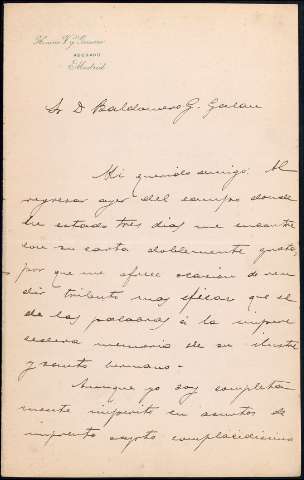 Honorio V. y
ABOGADO
Madrid
Sr D Baldomero G. Galan
Mi querido amigo: Al
regresar ayer del campo donde
he estado tres dias me encontré
con su carta doblemente grata,
por que me ofrece ocasion de ren
dir tributo mas eficaz que el
de las palabras à la impere
cedera memoria de su ilustre
y santo hermano -
Aunque yo soy completa
mente imperito en asuntos de
imprenta acepto complacidisimo